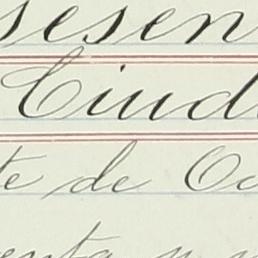 sesen
Ciud
te de Oc
enta y n